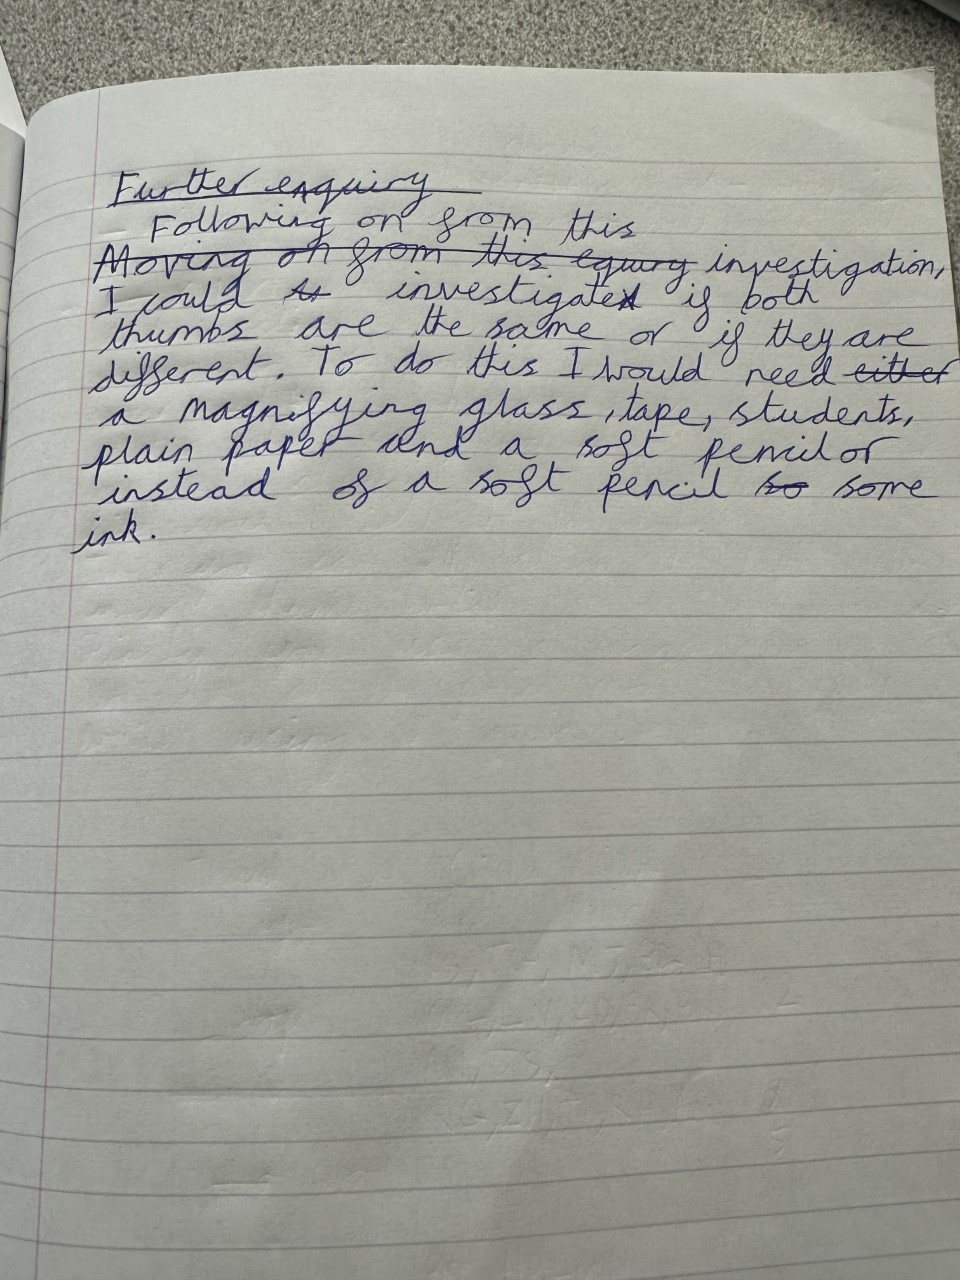 Further enquiry
Following on from this
Moving on from this equiry investigation,
I could investigate if both
thumbs are the same or if they are
different. To do this I would need either
a magnifying glass, tape, students,
plain paper and a soft pencil or
instead of a soft pencil so some
ink.